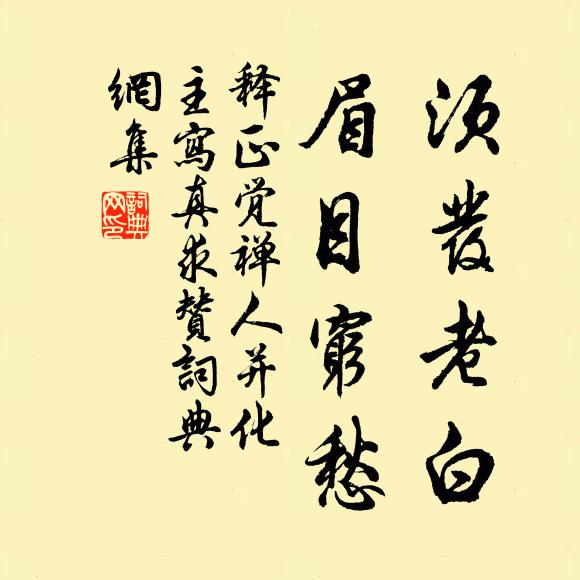 须發老白
眉目窮愁
释正觉禅人并化
主寫真求贊詞典
網集
詞典網印